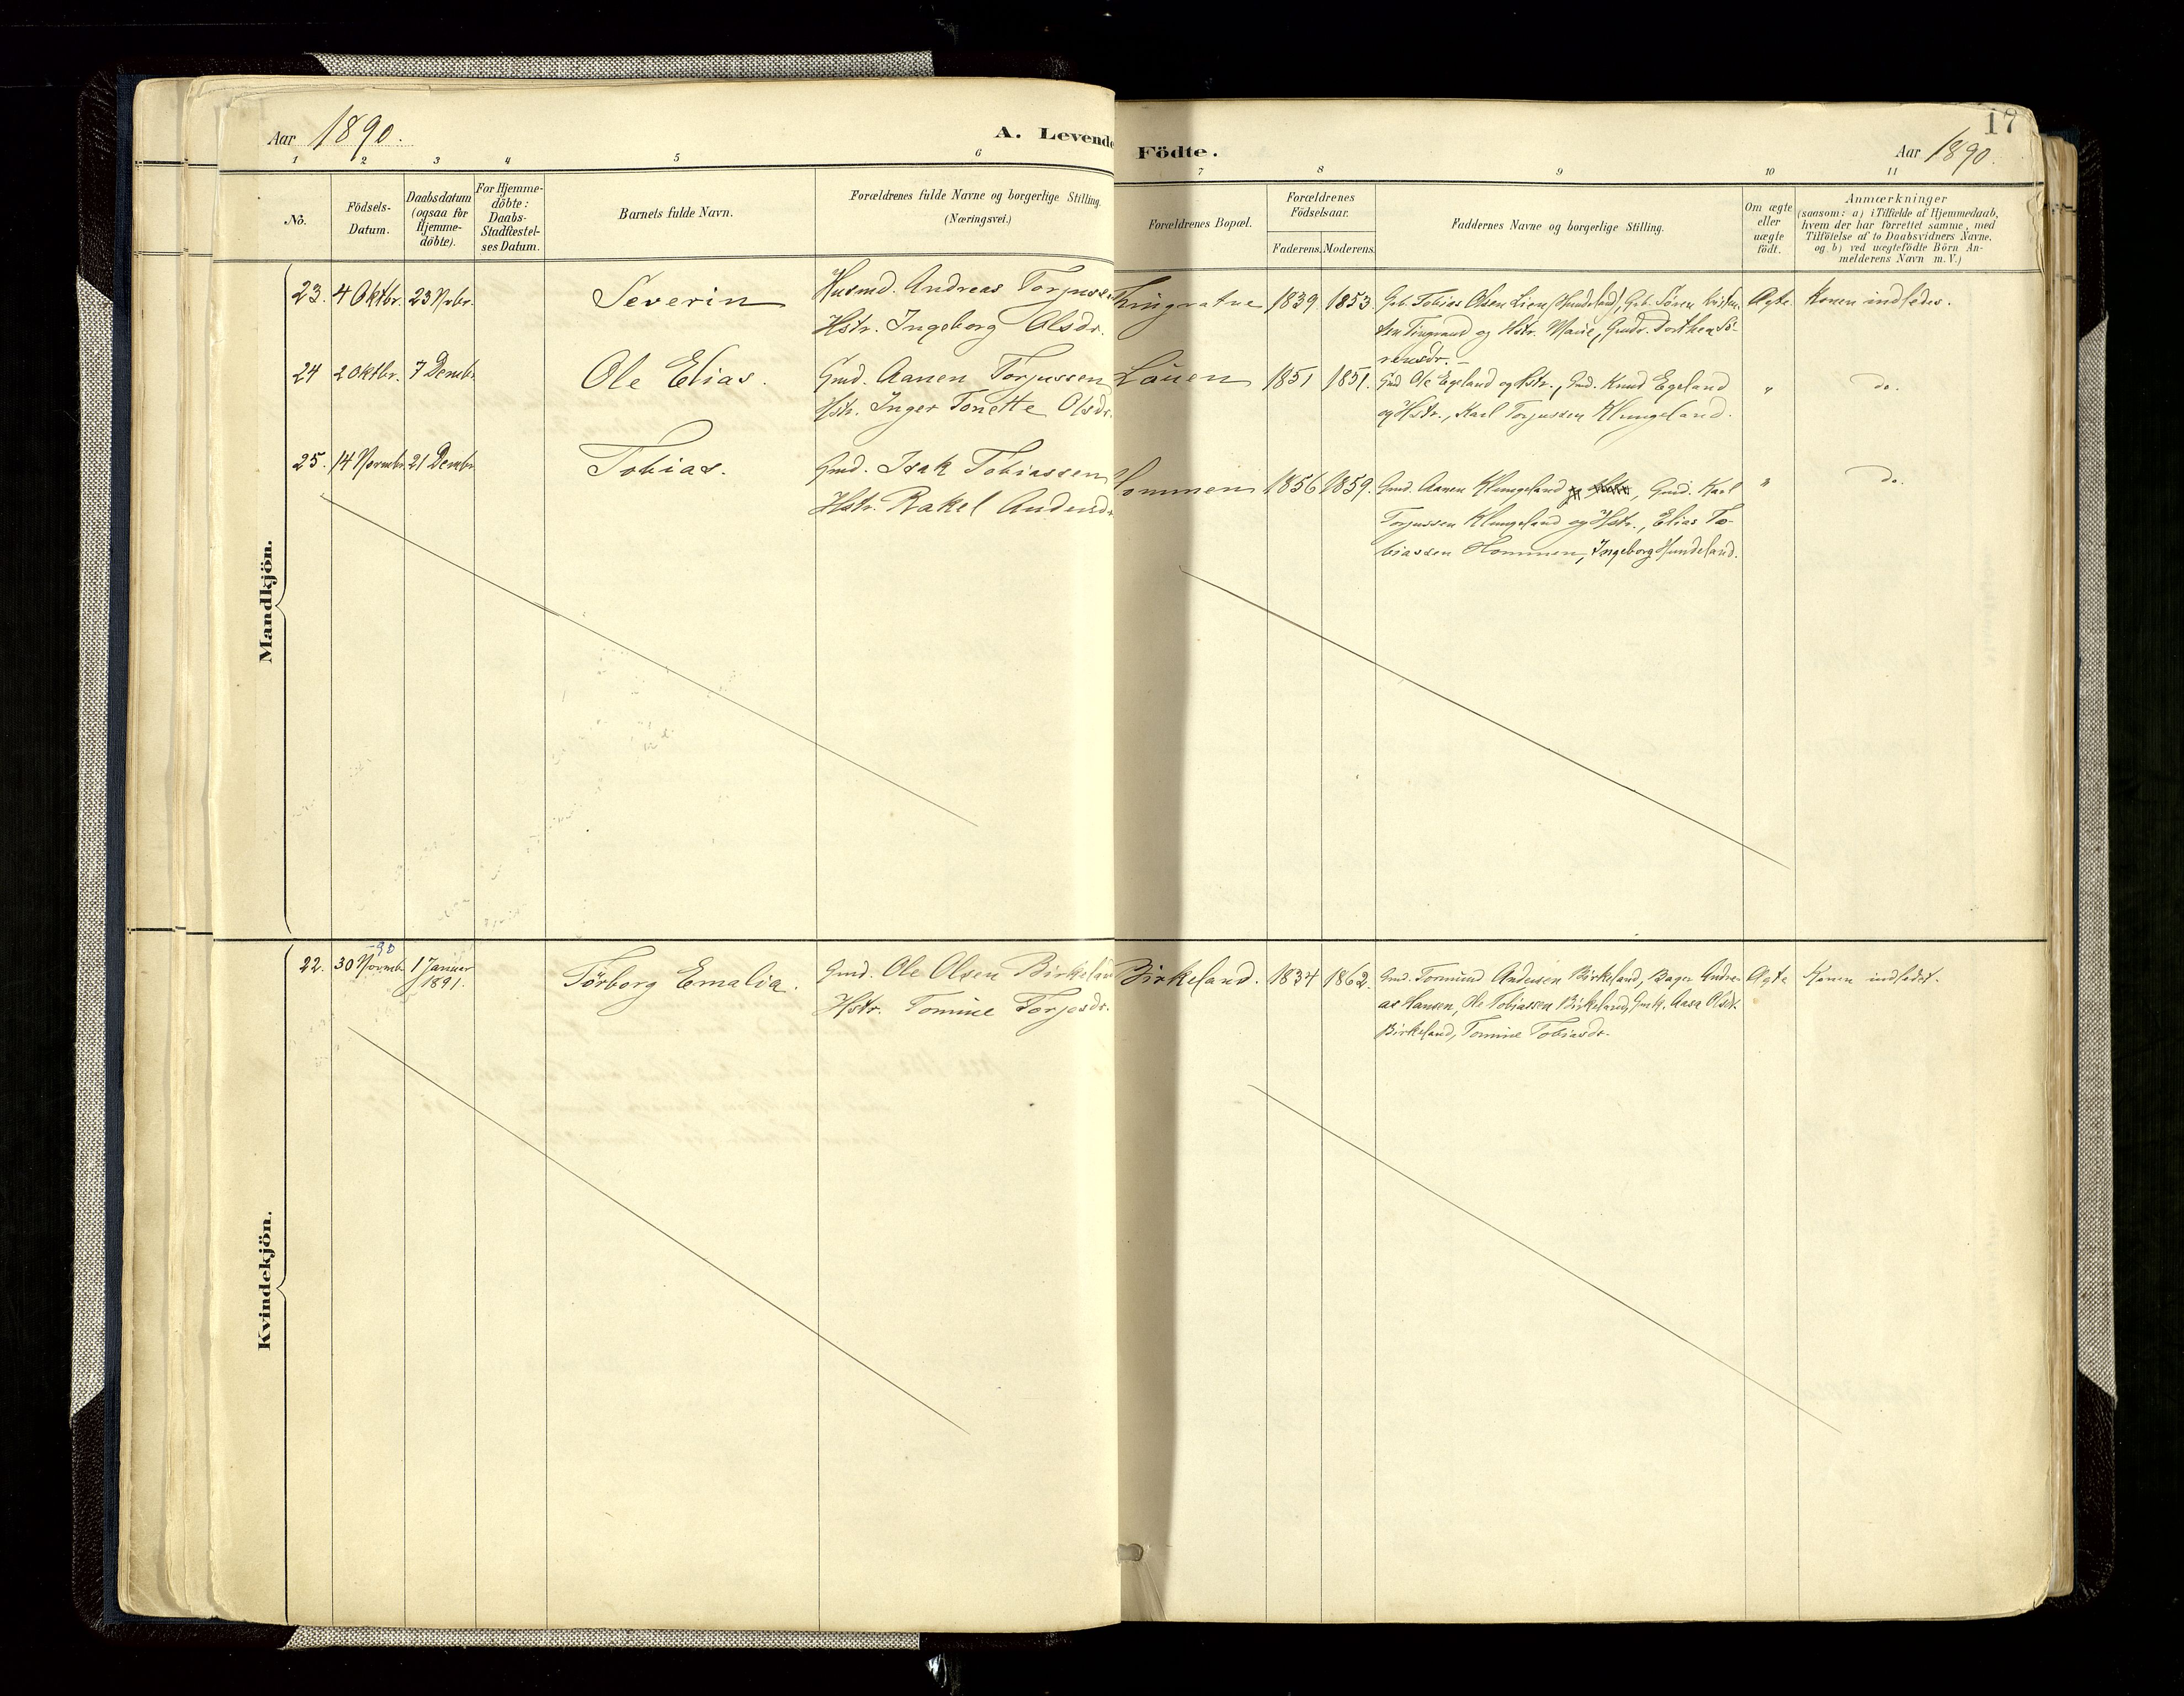 17
Aar 1890.
A. Levende Födte.
Aar 1890.
1 2 3 4 5 6 7 8 9 10 11
No.
Födsels-
Datum.
Daabsdatum
(ogsaa for
Hjemme-
döbte).
For Hjemme-
döbte:
Daabs-
Stadfæstel-
ses Datum.
Barnets fulde Navn.
Forældrenes fulde Navne og borgerlige Stilling.
(Næringsvei.)
Forældrenes Bopæl.
Forældrenes
Födselsaar.
Faderens. Moderens.
Faddernes Navne og borgerlige Stilling.
Om ægte
eller
uægte
födt.
Anmærkninger
(saasom: a) i Tilfælde af Hjemmedaab,
hvem der har forrettet samme, med
Tilföielse af to Daabsvidners Navne,
og b) ved uægtefödte Börn An-
melderens Navn m. V.)
Mandkjön.
23. 4 Oktbr. 23 Nvbr. Severin Husmd. Andreas Torjussen 1839 1853. Gb. Tobias Olsen Lien (Hundeland), Gb. Sören Kristen- Ægte. Konen indledes.
Hstr. Ingeborg Olsdr. og Hstr. Marie, Dorthea Sö-
rensdr. –
24 2 Oktbr. 7 Dembr. Ole Elias. Gmd. Aanen Torjussen Lauen 1851 1851. Gmd Ole Egeland og Hstr., Gmd. Knud Egeland " do.
Hstr. Inger Tonette Olsdr. og Hstr., Karl Torjussen Klungeland.
25. 14 Novembr. 21 Dembr. Tobias. Gmd. Isak Tobiassen Hommen 1856 1859. Gmd. Aanen Klungeland, Gmd. Karl " do.
Hstr. Rakel Andersdr. Torjussen Klungeland og Hstr., Elias To-
biassen Hommen, Ingeborg Hundeland.
Kvindekjön.
-90
22. 30 Novmb. 1 Januar Törborg Emalia. Gmd. Ole Olsen Birkeland Birkeland. 1834 1862. Gmd. Tormund Andersen Birkeland, Bager Andre- Ægte Konen indledet.
1891. Hstr. Tomine Torjesdr. as Hansen, Ole Tobiassen Birkeland, Aasa Olsdt.
Birkeland, Tomine Tobiasdr.